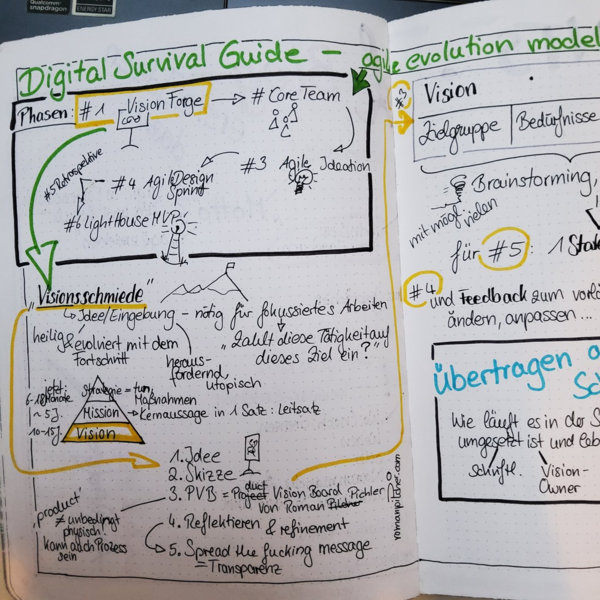 Qualcomm
snapdragon
ENERGY STAR
Digital Survival Guide – agile evolution model
Phasen: #1 Vision Forge → # Core Team
#3 Agile Ideation
#4 Agile Design
Sprint
#5 Retrospektive
#6 LightHouse MVP
„Visionsschmiede"
Idee/Eingebung – nötig für fokussiertes Arbeiten
heilig & evolviert mit dem
Fortschritt
heraus-
fordernd,
utopisch
„Zahlt diese Tätigkeit auf
dieses Ziel ein?"
jetzt:
6-18 Monate
Strategie = tun, Maßnahmen
~ 5 J.
Mission → Kernaussage in 1 Satz: Leitsatz
10-15 J.
Vision
1. Idee
2. Skizze
3. PVB = Project duct Vision Board
von Roman Pilcher Pichler
romanpilcher.com
„product"
≠ unbedingt
physisch!
kann auch Prozess
sein
4. Reflektieren & refinement
5. Spread the fucking message
= Transparenz
#3
Vision
Zielgruppe
Bedürfnisse
Brainstorming,
mit mögl. vielen
für #5: 1
#4 und Feedback zum
ändern, anpassen...
Übertragen
Wie läuft es in der
umgesetzt ist und
schriftl.
Vision-
Owner